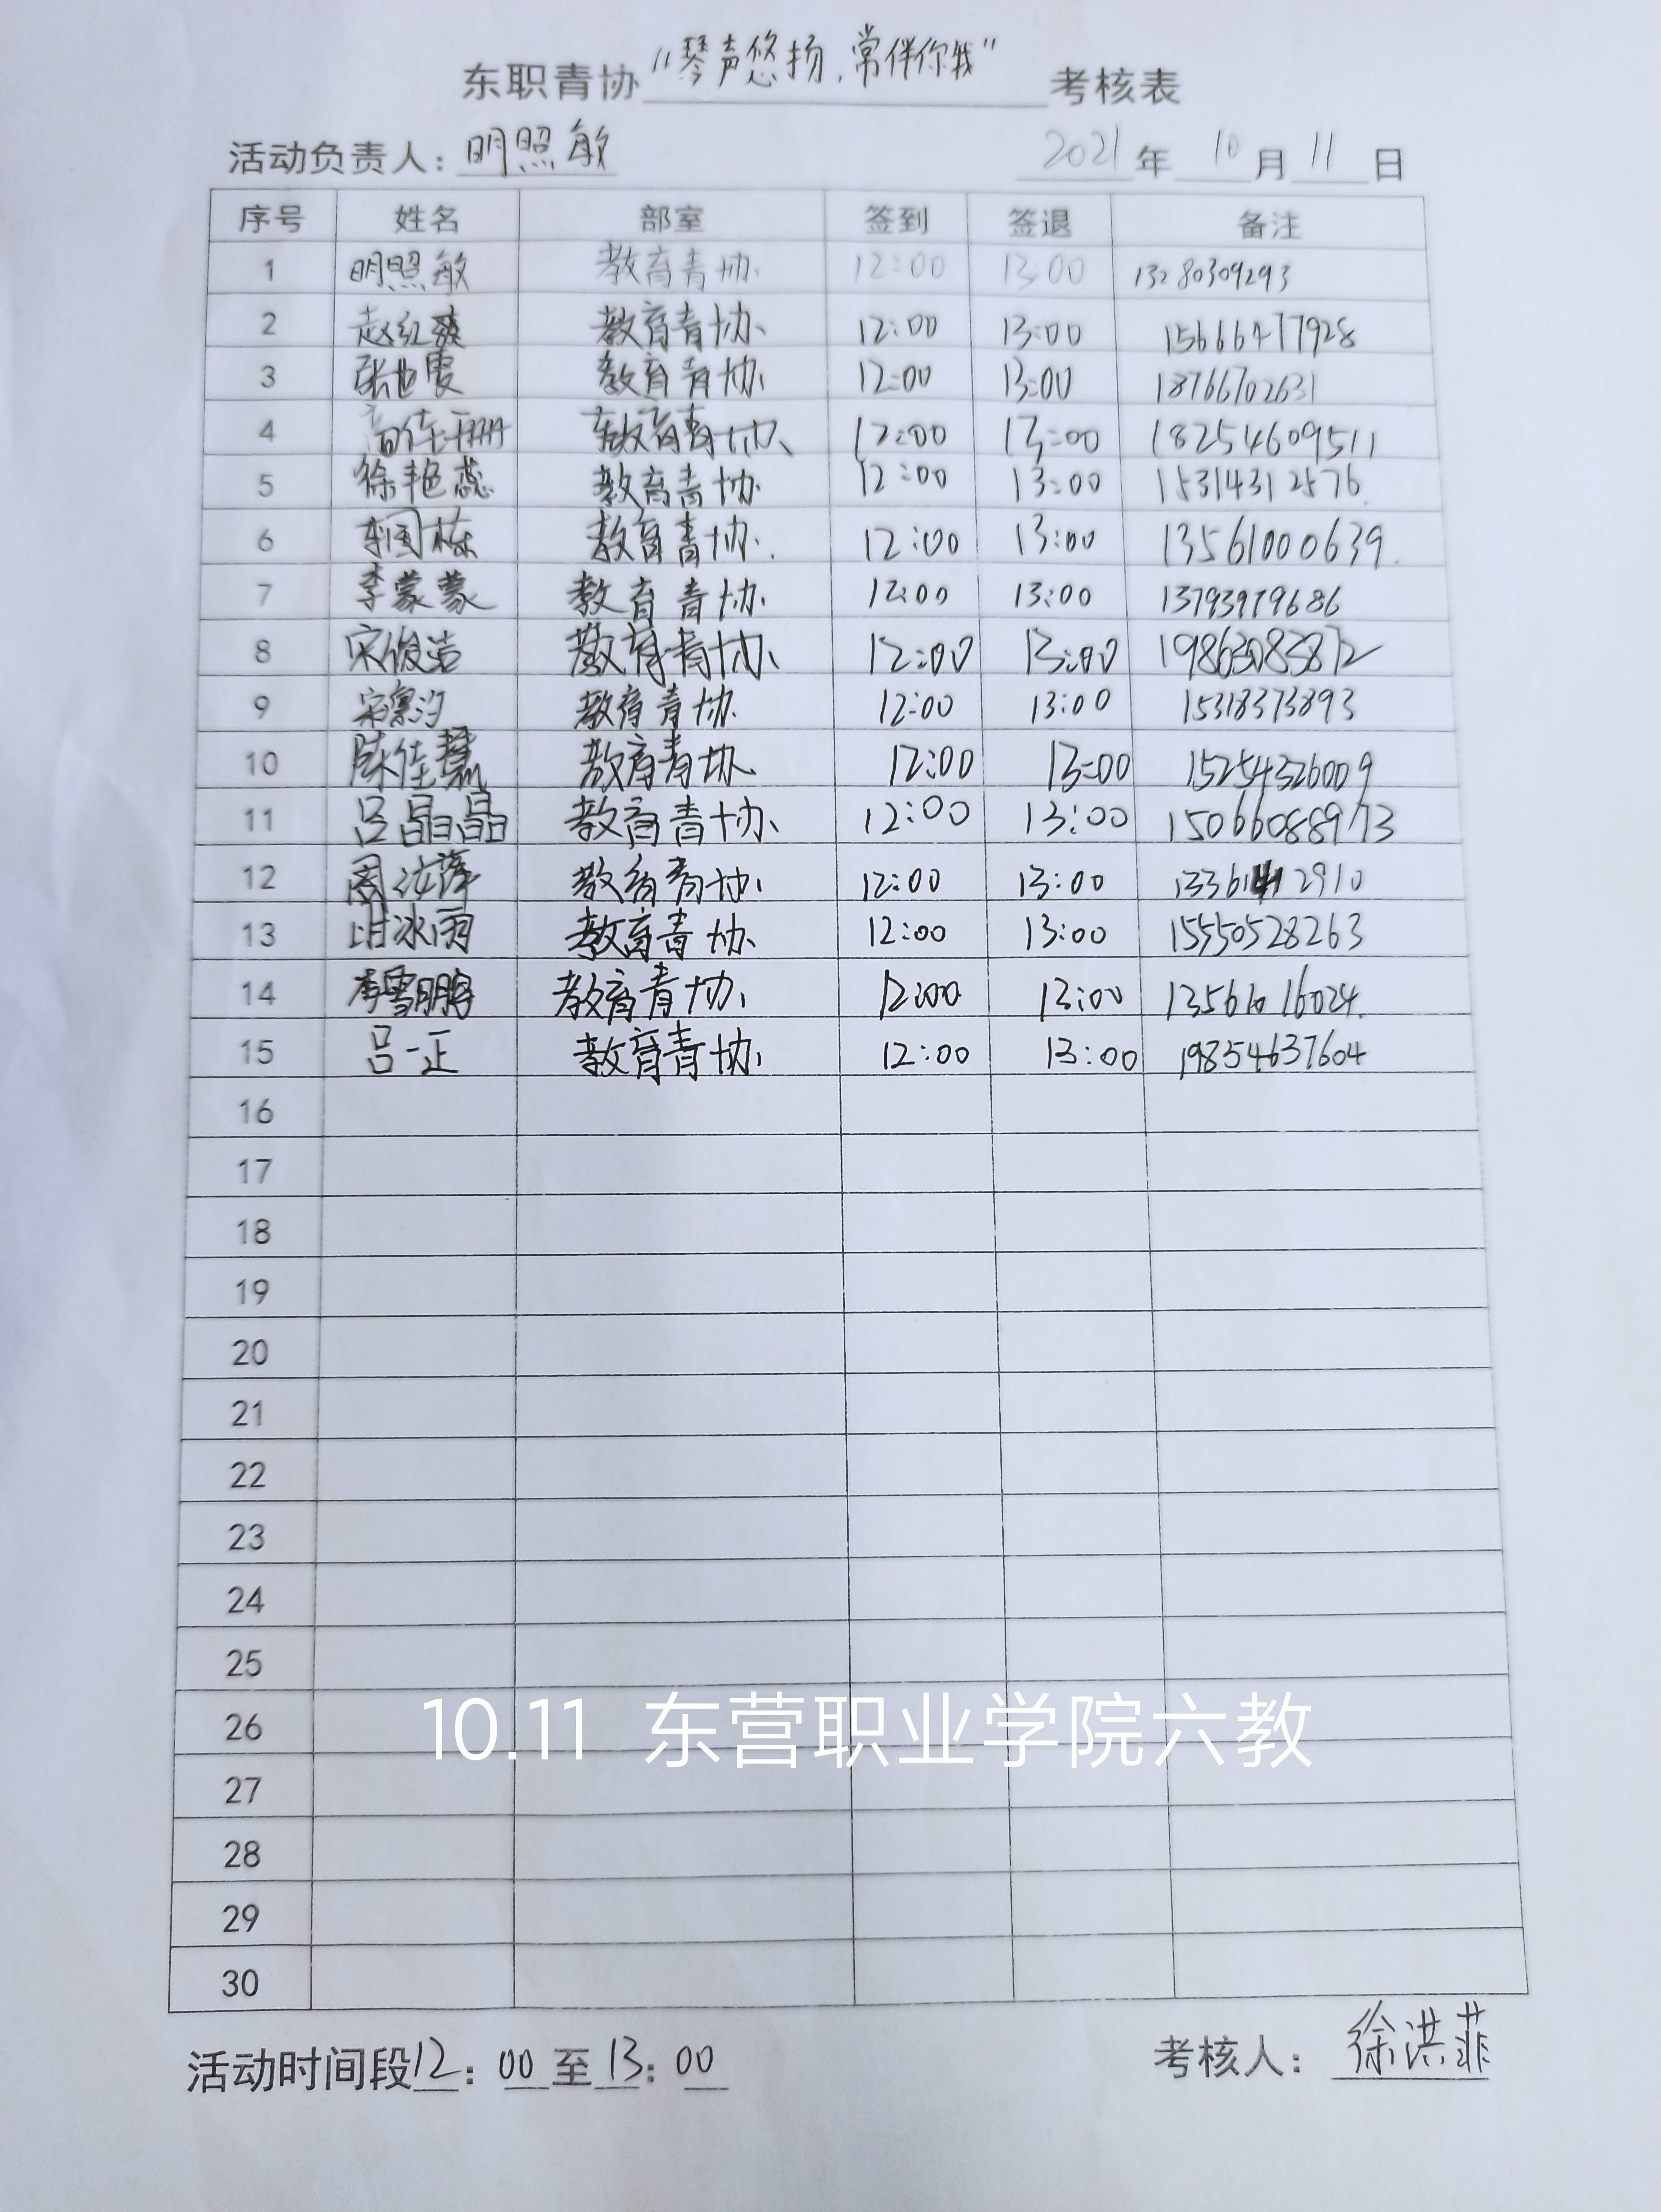 东职青协“琴声悠扬,常伴你我”考核表
活动负责人:明照敏 2021年10月11日
序号 姓名 部室 签到 签退 备注
1 明照敏 教育青协 12:00 13:00 13280309293
2 赵红爽 教育青协 12:00 13:00 15666477928
3 张世雯 教育青协 12:00 13:00 18766702631
4 教育青协 12:00 13:00 18254609511
5 徐艳蕊 教育青协 12:00 13:00 15314312576
6 李国栋 教育青协 12:00 13:00 13561000639
7 李蒙蒙 教育青协 12:00 13:00 13793979686
8 宋俊浩 教育青协 12:00 13:00
9 教育青协 12:00 13:00 15318373893
10 陈佳慧 教育青协 12:00 13:00 15254326009
11 吕晶晶 教育青协 12:00 13:00 15066088973
12 周汝萍 教育青协 12:00 13:00
13 明冰雨 教育青协 12:00 13:00 15550528263
14 李雪鹏 教育青协 12:00 13:00 13561016024
15 吕一正 教育青协 12:00 13:00 19854637604
16
17
18
19
20
21
22
23
24
25
26
10.11 东营职业学院六教
27
28
29
30
活动时间段12:00至13:00 考核人:徐洪菲